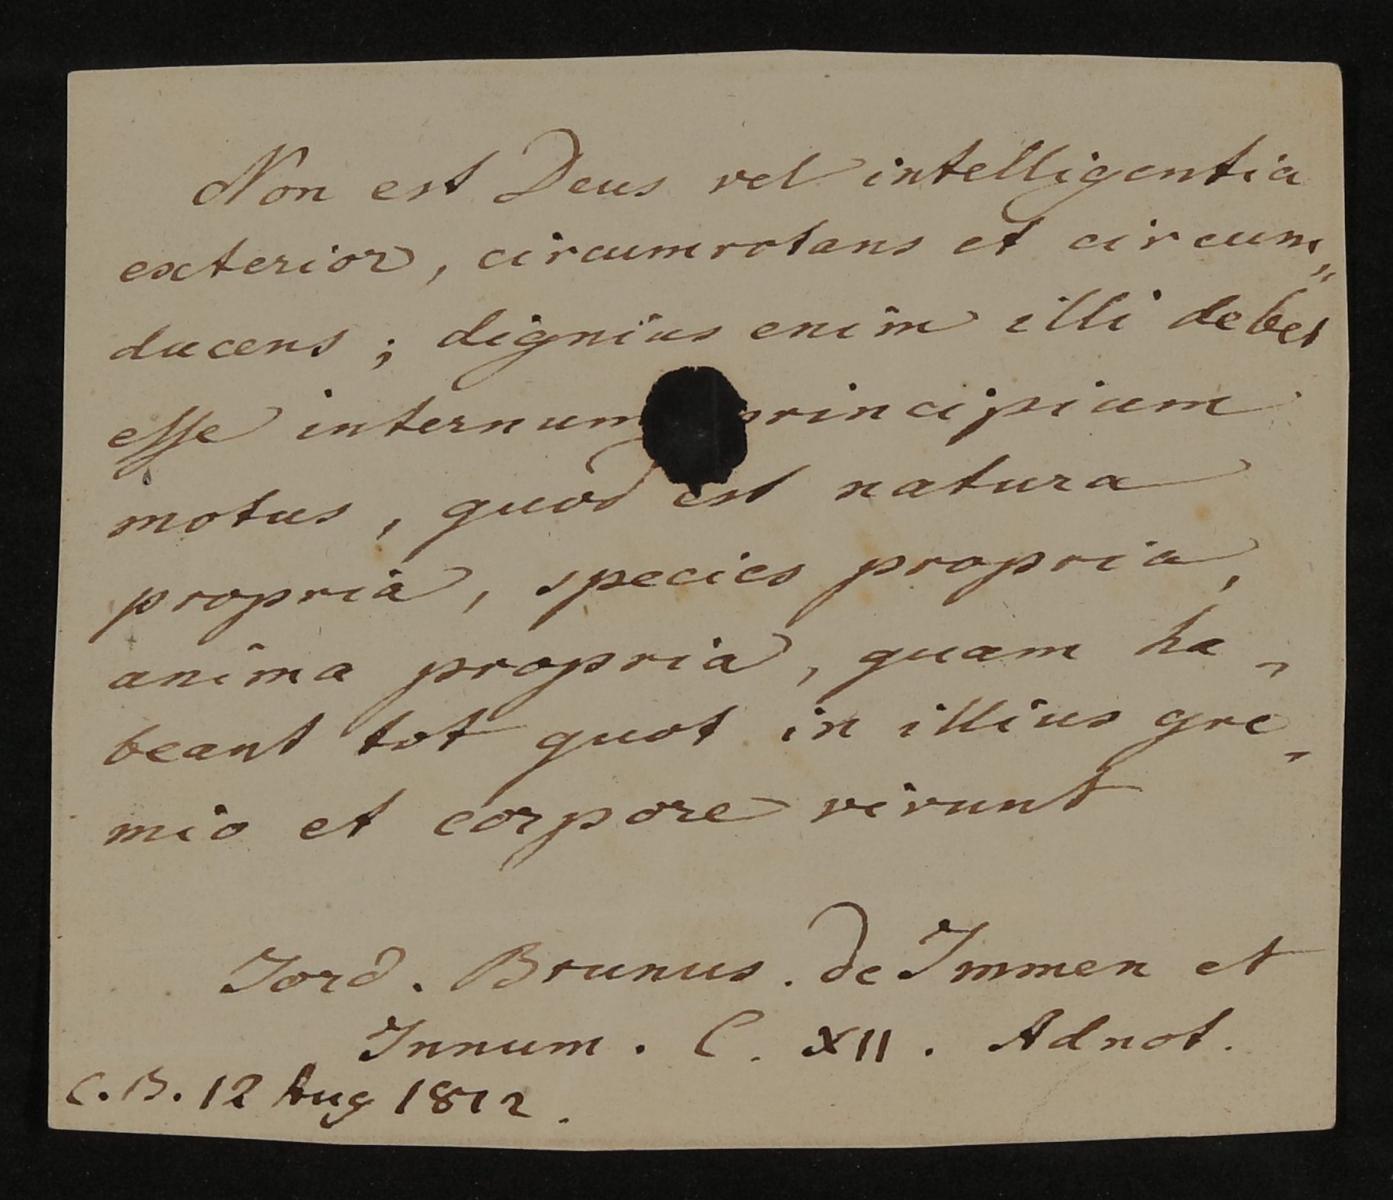 Non est Deus vel intelligentia
exterior, circumrotans et circum„
ducens; dignius enim illi debet
esse internum principium
motus, quod est natura
propria, species propria,
anima propria, quam ha-
beant tot quot in illius gre-
mio et corpore vivunt
Jord. Brunus. de Immen et
Innum. C. XII. Adnot.
C.B. 12 Aug 1812.